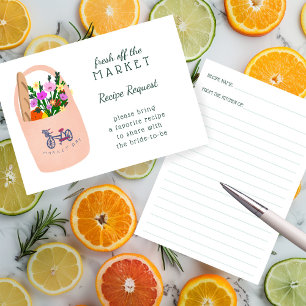 fresh off the
MARKET
Recipe Request
please bring
a favorite recipe
to share with
the bride-to-be
MARKET DAY
RECIPE NAME:
FROM THE KITCHEN OF: